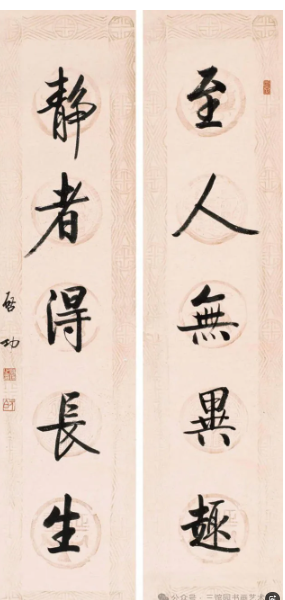 至人無異趣
静者得長生
啓功
公众号
书画艺术